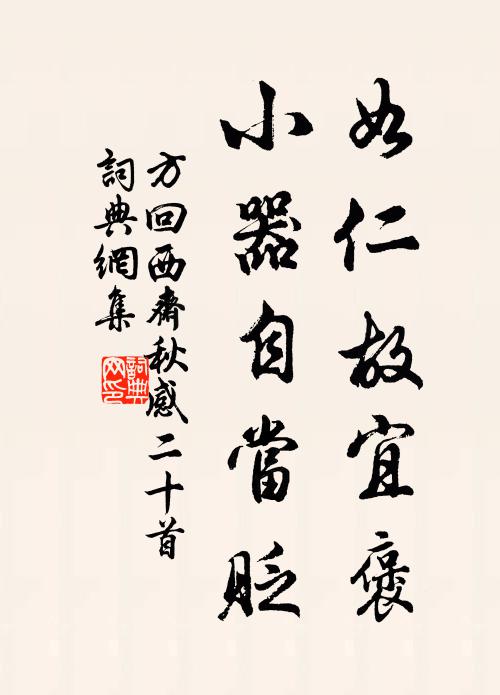 如仁故宜褒
小器自當貶
方回西齋秋感二十首
詞典網集
詞典網印